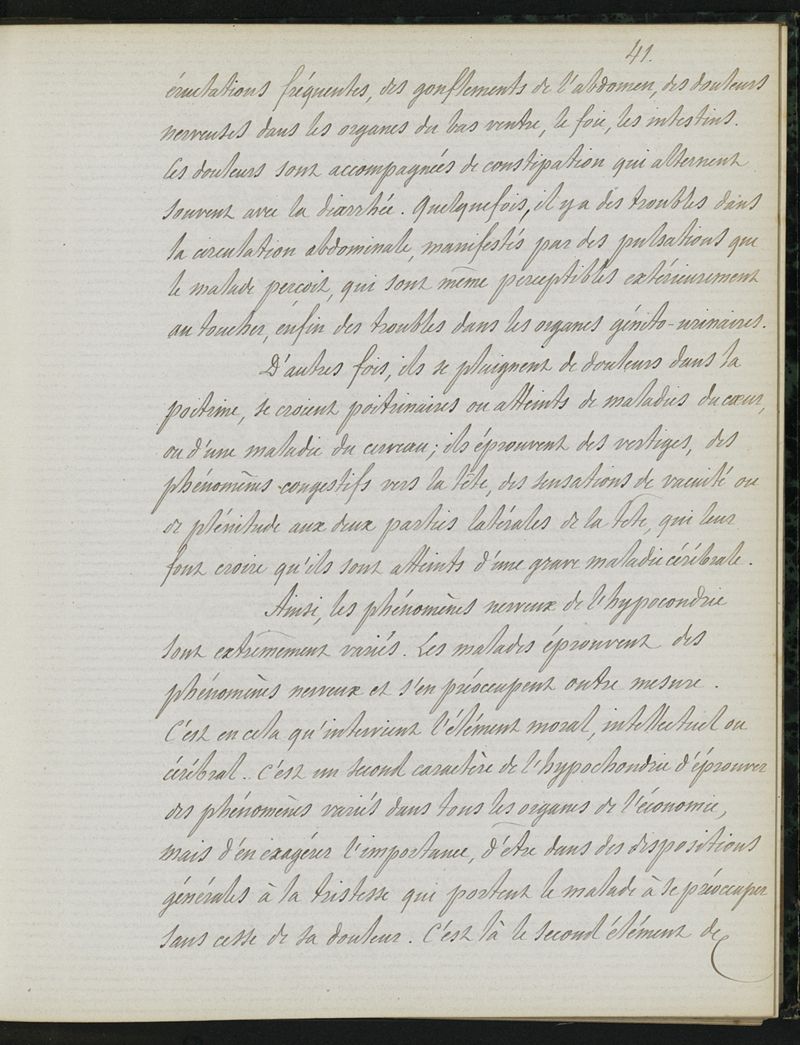 41.
éructations fréquentes, des gonflements de l'abdomen, des douleurs
nerveuses dans les organes du bas ventre, le foie, les intestins.
Ces douleurs sont accompagnées de constipation qui alternent
souvent avec la diarrhée. Quelquefois, il y a des troubles dans
la circulation abdominale, manifestés par des pulsations que
le malade perçoit, qui sont même perceptibles extérieurement
au toucher, enfin des troubles dans les organes génito-urinaires.
D'autres fois, ils se plaignent de douleurs dans la
poitrine, se croient poitrinaires ou atteints de maladies du cœur,
ou d'une maladie du cerveau; ils éprouvent des vertiges, des
phénomènes congestifs vers la tête, des sensations de vacuité ou
de plénitude aux deux parties latérales de la tête, qui leur
font croire qu'ils sont atteints d'une grave maladie cérébrale.
Ainsi, les phénomènes nerveux de l'hypocondrie
sont extrêmement variés. Les malades éprouvent des
phénomènes nerveux et s'en préoccupent outre mesure.
C'est en cela qu'intervient l'élément moral, intellectuel ou
cérébral. C'est un second caractère de l'hypochondrie d'éprouver
des phénomènes variés dans tous les organes de l'économie,
mais d'en exagérer l'importance, d'être dans des dispositions
générales à la tristesse qui portent le malade à se préoccuper
sans cesse de sa douleur. C'est là le second élément de